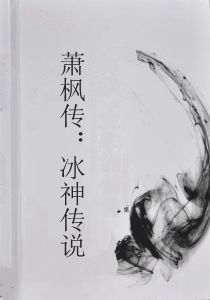 萧枫传：冰神传说